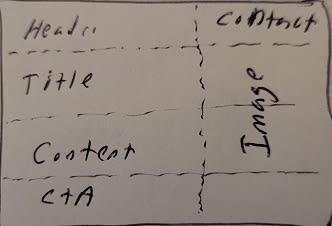 Header
Contact
Title
Image
Content
CtA